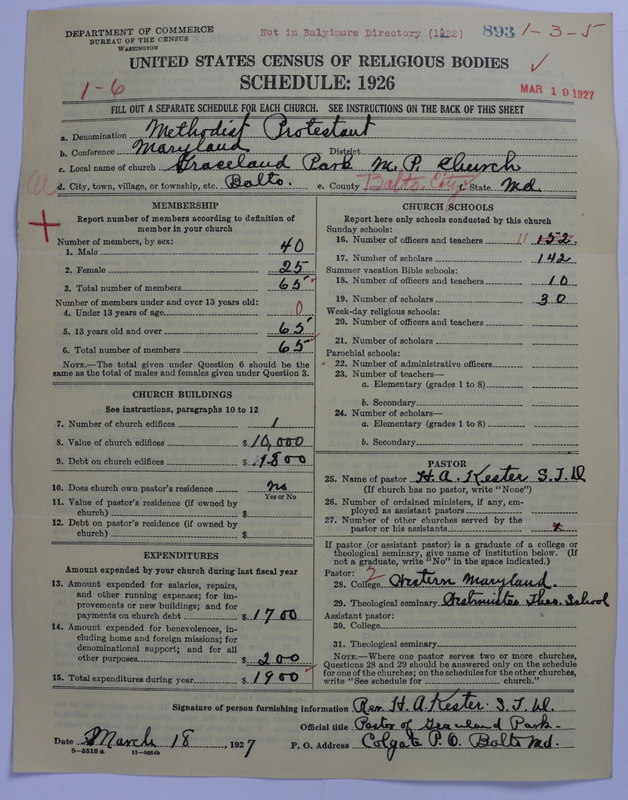 DEPARTMENT OF COMMERCE
BUREAU OF THE CENSUS
WASHINGTON
Not in Balyimore Directory (1922)
893 1-3-5
UNITED STATES CENSUS OF RELIGIOUS BODIES
SCHEDULE: 1926
1-6
MAR 19 1927
FILL OUT A SEPARATE SCHEDULE FOR EACH CHURCH. SEE INSTRUCTIONS ON THE BACK OF THIS SHEET
a. Denomination Methodist Protestant
b. Conference Maryland District
c. Local name of church Graceland Park M. P. Church
d. City, town, village, or township, etc. Balto. e. County Balto City f. State Md.
MEMBERSHIP
Report number of members according to definition of member in your church
Number of members, by sex:
1. Male 40
2. Female 25
3. Total number of members 65
Number of members under and over 13 years old:
4. Under 13 years of age 0
5. 13 years old and over 65
6. Total number of members 65
NOTE.—The total given under Question 6 should be
same as the total of males and females given under Question 3.
CHURCH BUILDINGS
See instructions, paragraphs 10 to 12
7. Number of church edifices 1
8. Value of church edifices $ 10,000
9. Debt on church edifices $ 1800
10. Does church own pastor's residence no
Yes or No
11. Value of pastor's residence (if owned by
church) $
12. Debt on pastor's residence (if owned by
church) $
EXPENDITURES
Amount expended by your church during last fiscal year
13. Amount expended for salaries, repairs,
and other running expenses; for im-
provements or new buildings; and for
payments on church debt $ 1700
14. Amount expended for benevolences, in-
cluding home and foreign missions; for
denominational support; and for all
other purposes $ 200
15. Total expenditures during year $ 1900
CHURCH SCHOOLS
Report here only schools conducted by this church
Sunday schools:
16. Number of officers and teachers 11 152
17. Number of scholars 142
Summer vacation Bible schools:
18. Number of officers and teachers 10
19. Number of scholars 30
Week-day religious schools:
20. Number of officers and teachers
21. Number of scholars
Parochial schools:
22. Number of administrative officers
23. Number of teachers—
a. Elementary (grades 1 to 8)
b. Secondary
24. Number of scholars—
a. Elementary (grades 1 to 8)
b. Secondary
PASTOR
25. Name of pastor H. A. Kester S.T.D.
(If church has no pastor, write "None")
26. Number of ordained ministers, if any, em-
ployed as assistant pastors
27. Number of other churches served by the
pastor or his assistants x
If pastor (or assistant pastor) is a graduate of a college or
theological seminary, give name of institution below. (If
not a graduate, write "No" in the space indicated.)
Pastor: 2
28. College Western Maryland
29. Theological seminary Westminster Theo. School
Assistant pastor:
30. College
31. Theological seminary
NOTE.—Where one pastor serves two or more churches,
Questions 28 and 29 should be answered only on the schedule
for one of the churches; on the schedules for the other churches,
write "See schedule for church."
Signature of person furnishing information Rev. H. A. Kester. S.T.D.
Official title Pastor of Graceland Park.
Date March 18, 1927 P. O. Address Colgate P.O. Balto Md.
8-5518a